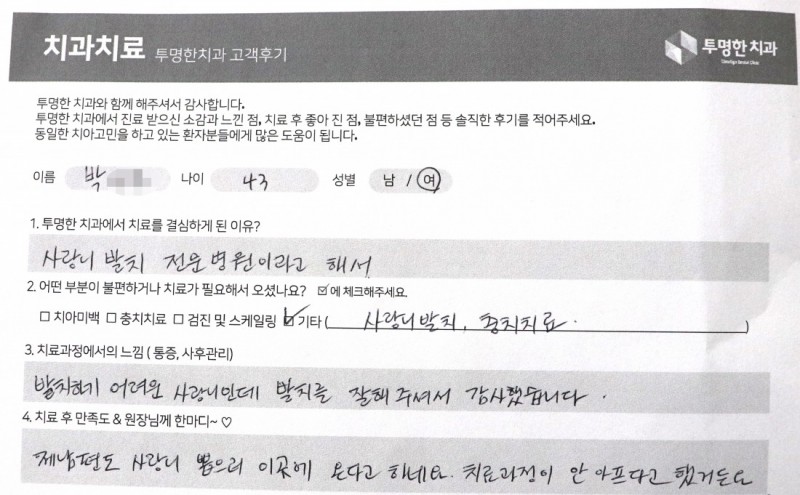 치과치료 투명한치과 고객후기
투명한 치과
투명한 치과와 함께 해주셔서 감사합니다.
투명한 치과에서 진료 받으신 소감과 느낀 점, 치료 후 좋아 진 점, 불편하셨던 점 등 솔직한 후기를 적어주세요.
동일한 치아고민을 하고 있는 환자분들에게 많은 도움이 됩니다.
이름 박 나이 43 성별 남 / 여
1. 투명한 치과에서 치료를 결심하게 된 이유?
사랑니 발치 전문병원이라고 해서
2. 어떤 부분이 불편하거나 치료가 필요해서 오셨나요? ☑에 체크해주세요.
☐ 치아미백 ☐ 충치치료 ☐ 검진 및 스케일링 ☑ 기타 ( 사랑니발치, 충치치료. )
3. 치료과정에서의 느낌 ( 통증, 사후관리)
발치하기 어려운 사랑니인데 발치를 잘해 주셔서 감사했습니다.
4. 치료 후 만족도 & 원장님께 한마디~ ♡
제남편도 사랑니 뽑으러 이곳에 온다고 하네요. 치료과정이 안 아프다고 했거든요